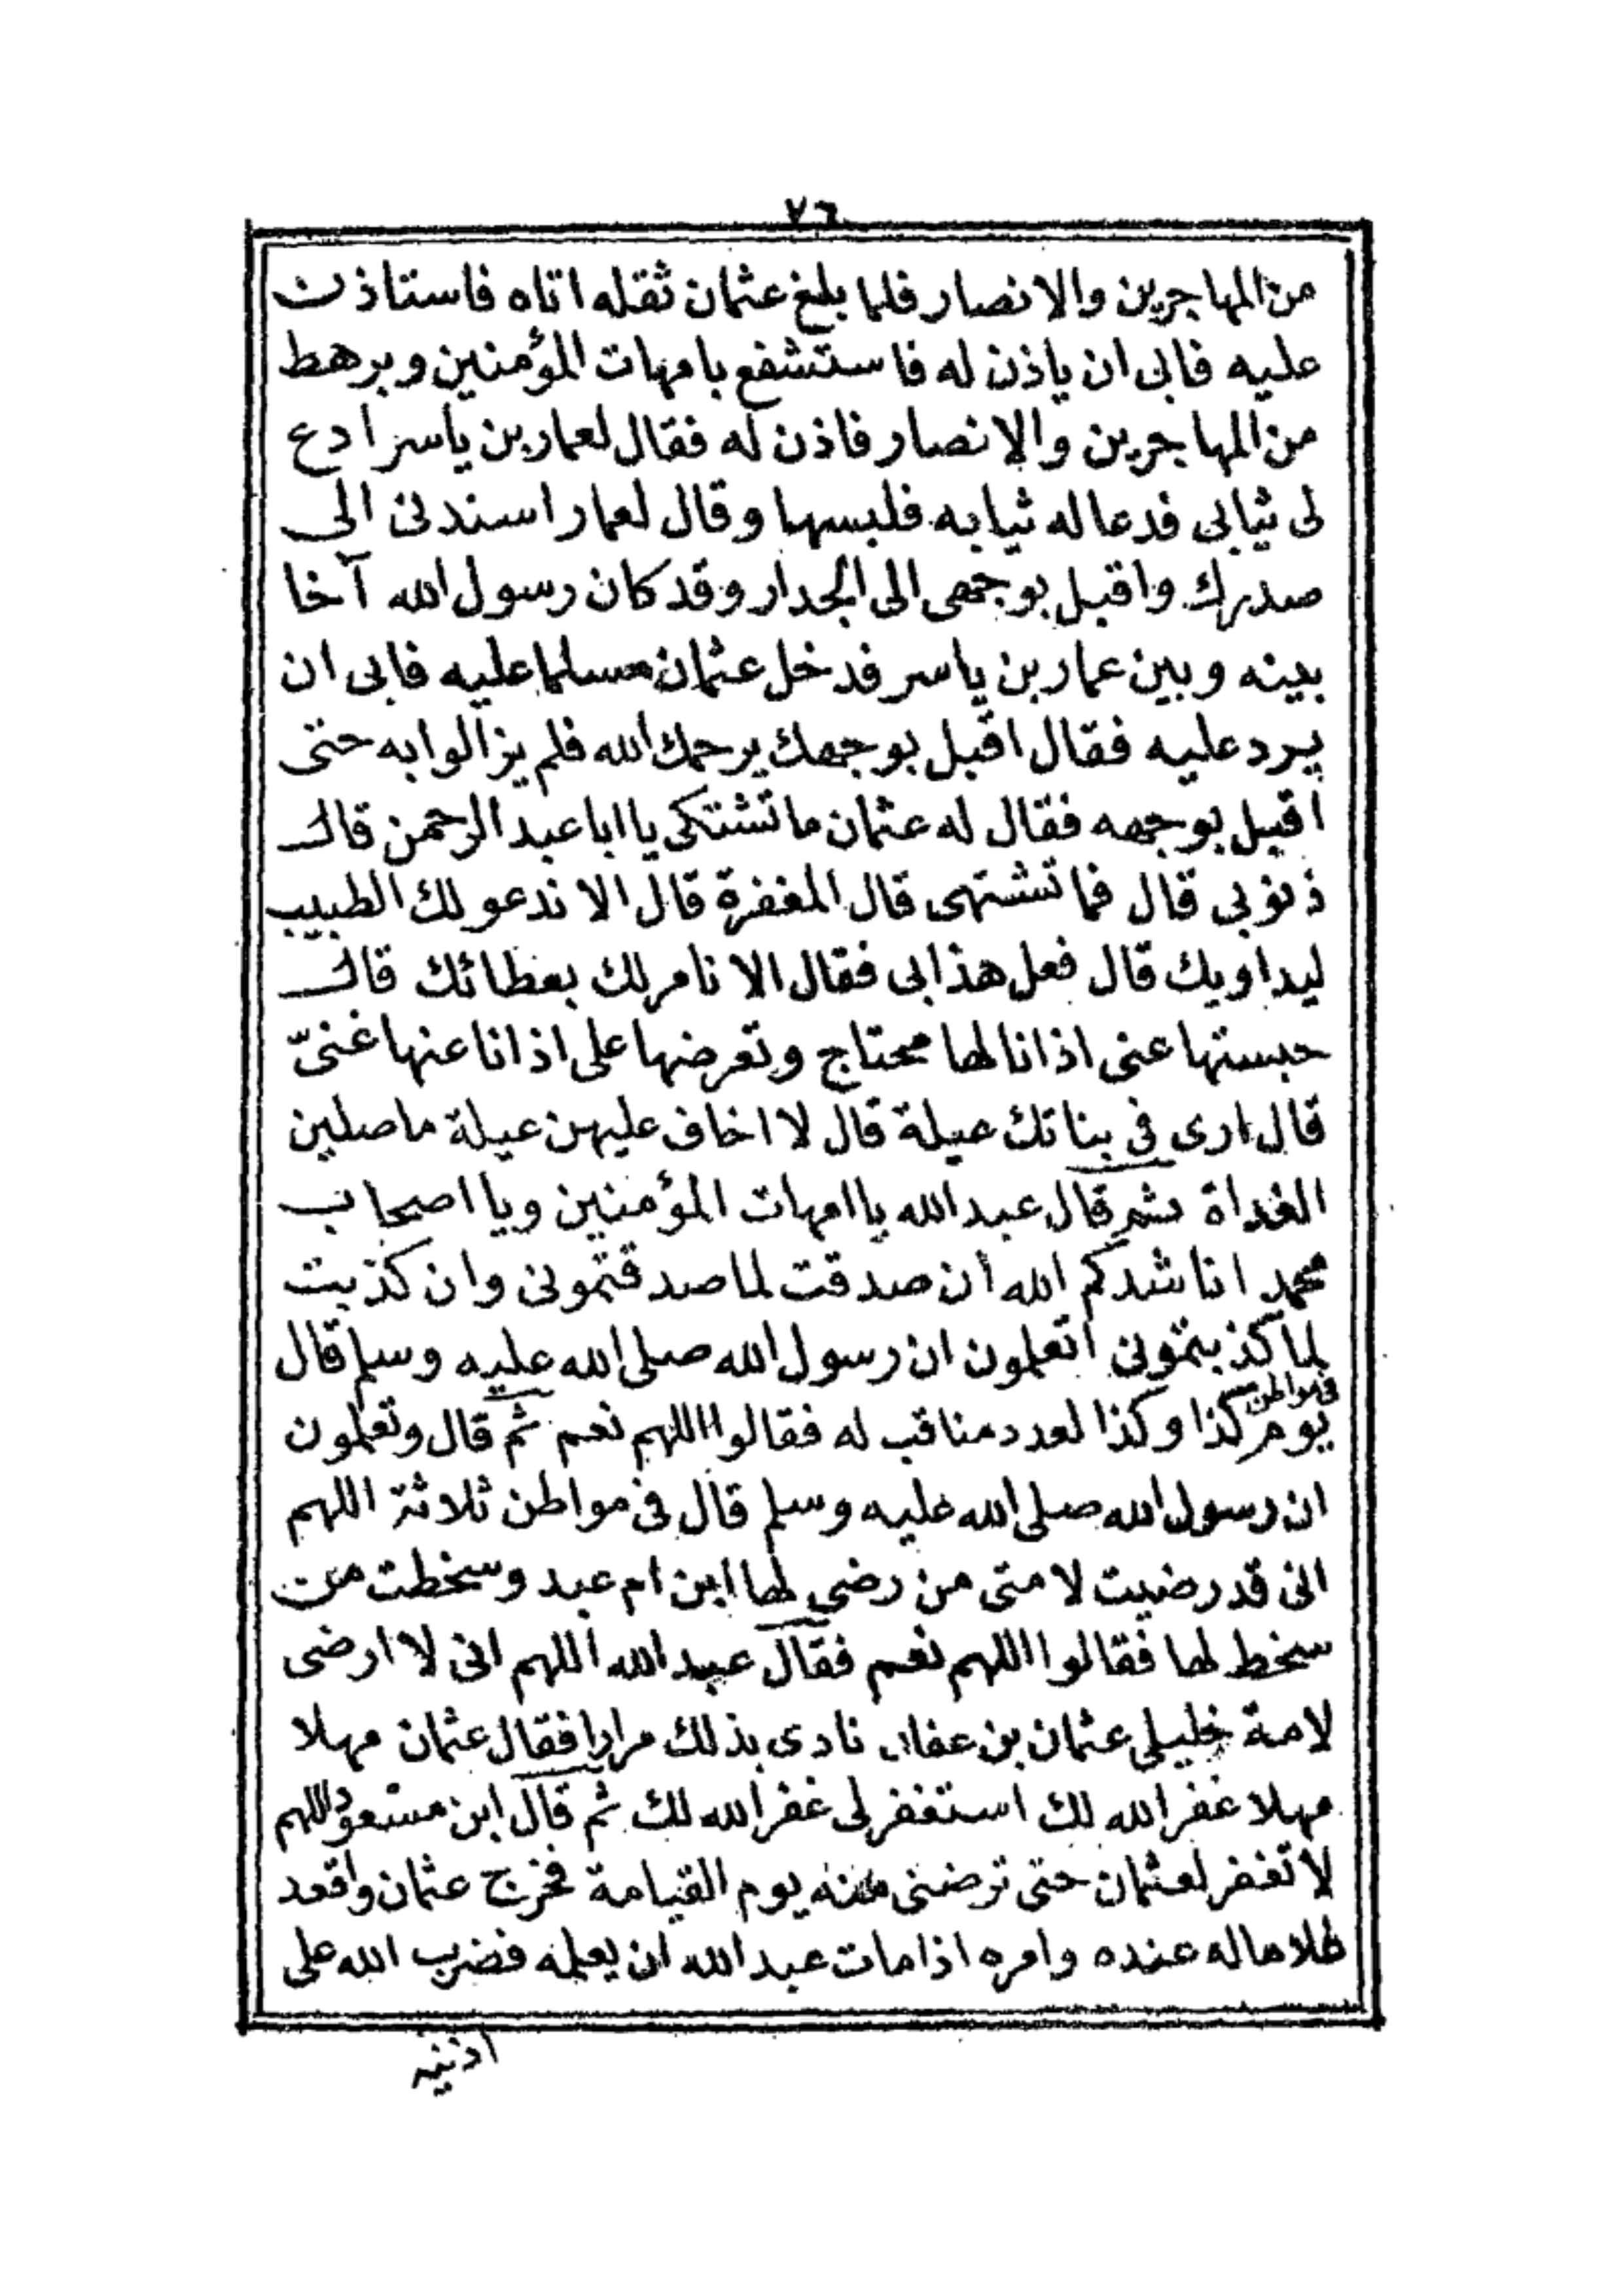 ٧٦
من المهاجرين والانصار فلما بلغ عثمان ثقله اتاه فاستاذن
عليه فابى ان ياذن له فاستشفع بامهات المؤمنين وبرهط
من المهاجرين والانصار فاذن له فقال لعمار بن ياسر ادع
لى ثيابى فدعا له ثيابه فلبسها وقال لعمار اسندنى الى
صدرك واقبل بوجهى الى الجدار وقد كان رسول الله آخا
بينه وبين عمار بن ياسر فدخل عثمان مسلما عليه فابى ان
يرد عليه فقال اقبل بوجهك يرحمك الله فلم يزالوا به حتى
اقبل بوجهه فقال له عثمان ما تشتكى يا ابا عبد الرحمن قال
ذنوبى قال فما تشتهى قال المغفرة قال الا ندعو لك الطبيب
ليداويك قال فعل هذا بى فقال الا نامر لك بعطائك قال
حبستها عنى اذ انا لها محتاج وتعرضها على اذ انا عنها غنىّ
قال ارى فى بناتك عيلة قال لا اخاف عليهن عيلة ما صلين
الغداة ثم قال عبد الله يا امهات المؤمنين ويا اصحاب
محمد انا شدكم الله أن صدقت لما صدقتمونى وان كذبت
لما كذبتمونى اتعلمون ان رسول الله صلى الله عليه وسلم قال
فى مواطن
يوم كذا وكذا لعدد مناقب له فقالوا اللهم نعم ثم قال وتعلمون
ان رسول الله صلى الله عليه وسلم قال فى مواطن ثلاثة اللهم
انى قد رضيت لامتى من رضى لها ابن ام عبد وسخطت من
سخط لها فقالوا اللهم نعم فقال عبد الله اللهم انى لا ارضى
لامة خليلى عثمان بن عفان نادى بذلك مرارا فقال عثمان مهلا
مهلا غفر الله لك استغفر لى غفر الله لك ثم قال ابن مسعود اللهم
لا تغفر لعثمان حتى ترضنى منه يوم القيامة فخرج عثمان واقعد
غلاما له عنده وامره اذا مات عبد الله ان يعلمه فضرب الله على
اذنيه